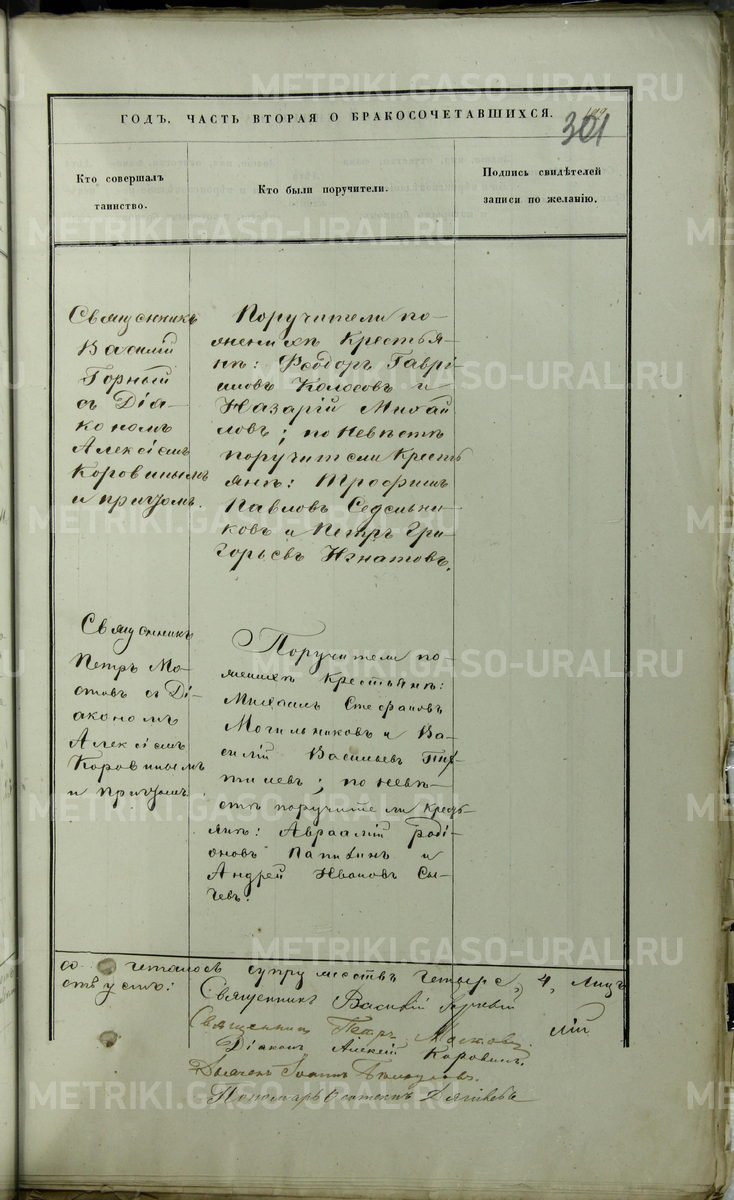 ГОДЪ. ЧАСТЬ ВТОРАЯ О БРАКОСОЧЕТАВШИХСЯ.
301
Кто совершалъ
таинство.
Кто были поручители.
Подпись свидѣтелей
записи по желанію.
Священникъ
Василій
Горный
съ Діа-
кономъ
Алексіемъ
Коровинымъ
и причтомъ.
Поручители по
женихѣ Крестья-
не: Ѳеодоръ Гаврі-
иловъ Колосовъ и
Назарій Михай
ловъ; по невѣстѣ
поручители Кресть
яне: Трофимъ
Павловъ Седельни-
ковъ и Петръ Гри
горьевъ Игнатовъ.
Священникъ
Петръ Мо-
съ Ді-
акономъ
Алексіемъ
Коровинымъ
и причтомъ.
Поручители по-
женихѣ Крестьяне:
Михаилъ Стефановъ
Могильниковъ и Ва-
силій Васильевъ
; по невѣ-
стѣ поручители Кресть-
яне: Авраамій Роді-
оновъ и
Андрей Ивановъ Сы-
чевъ.
четалось супружествъ четыре, 4, лицъ
Священникъ Василій Горный
Священникъ Петръ
Діаконъ Алексій Коровинъ.
Дьячекъ Іоаннъ
Пономарь
METRIKI.GASO-URAL.RU